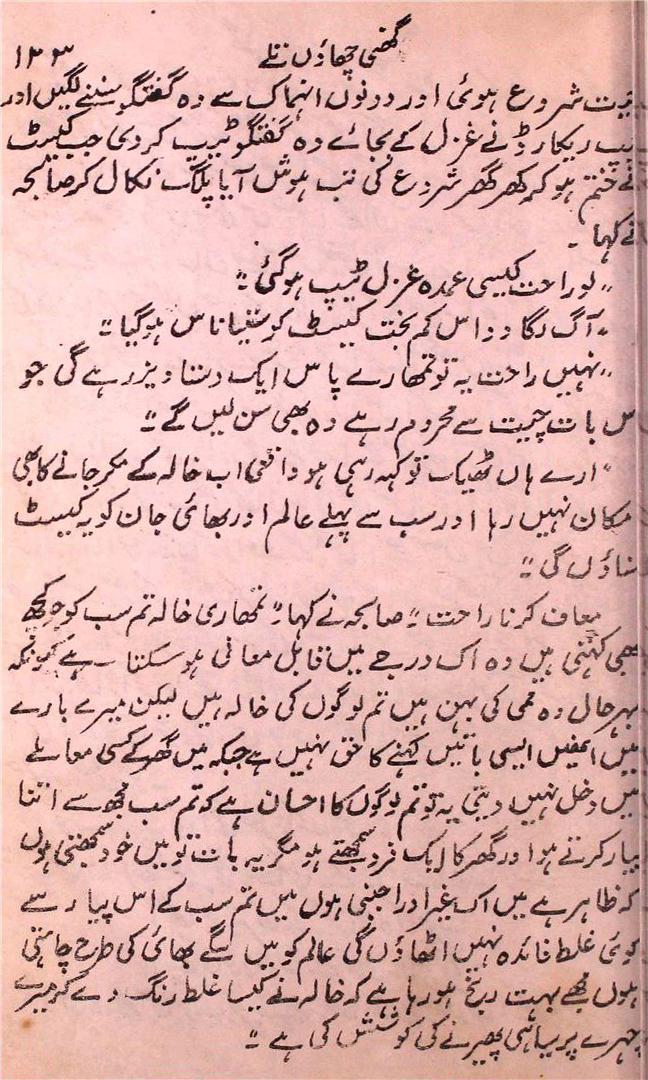 گھنی چھاؤں تلے
۱۳۳
چیت شروع ہوئی اور دونوں انہماک سے وہ گفتگو سننے لگیں اور
ٹیپ ریکارڈ نے غزل کے بجائے وہ گفتگو ٹیپ کر دی جب کیسٹ
نے ختم ہو کر گھر گھر شروع کی تب ہوش آیا پلگ نکال کر صابحہ
نے کہا۔
"لو راحت کیسی عمدہ غزل ٹیپ ہو گئی۔"
"آگ لگا دو اس کم بخت کیسٹ کو ستیاناس ہو گیا۔"
"نہیں راحت یہ تو تمھارے پاس ایک دستاویز رہے گی جو
اس بات چیت سے محروم رہے وہ بھی سن لیں گے۔"
"ارے ہاں ٹھیک تو کہہ رہی ہو واقعی اب خالہ کے مکر جانے کا بھی
امکان نہیں رہا اور سب سے پہلے عالم اور بھائی جان کو یہ کیسٹ
سناؤں گی۔"
معاف کرنا راحت۔" صابحہ نے کہا۔" تمھاری خالہ تم سب کو جو کچھ
بھی کہتی ہیں وہ اک درجے میں قابل معافی ہو سکتا ہے کیونکہ
بہرحال وہ ممی کی بہن ہیں تم لوگوں کی خالہ ہیں لیکن میرے بارے
میں انھیں ایسی باتیں کہنے کا حق نہیں ہے جبکہ میں گھر کے کسی معاملے
میں دخل نہیں دیتی یہ تو تم لوگوں کا احسان ہے کہ تم سب مجھ سے اتنا
پیار کرتے ہو اور گھر کا ایک فرد سمجھتے ہو مگر یہ بات تو میں خود سمجھتی ہوں
کہ ظاہر ہے میں اک غیر اور اجنبی ہوں میں تم سب کے اس پیار سے
کوئی غلط فائدہ نہیں اٹھاؤں گی عالم کو میں سگے بھائی کی طرح چاہتی
ہوں مجھے بہت رنج ہو رہا ہے کہ خالہ نے کیسا غلط رنگ دے کر میرے
چہرے پر سیاہی پھیرنے کی کوشش کی ہے۔"